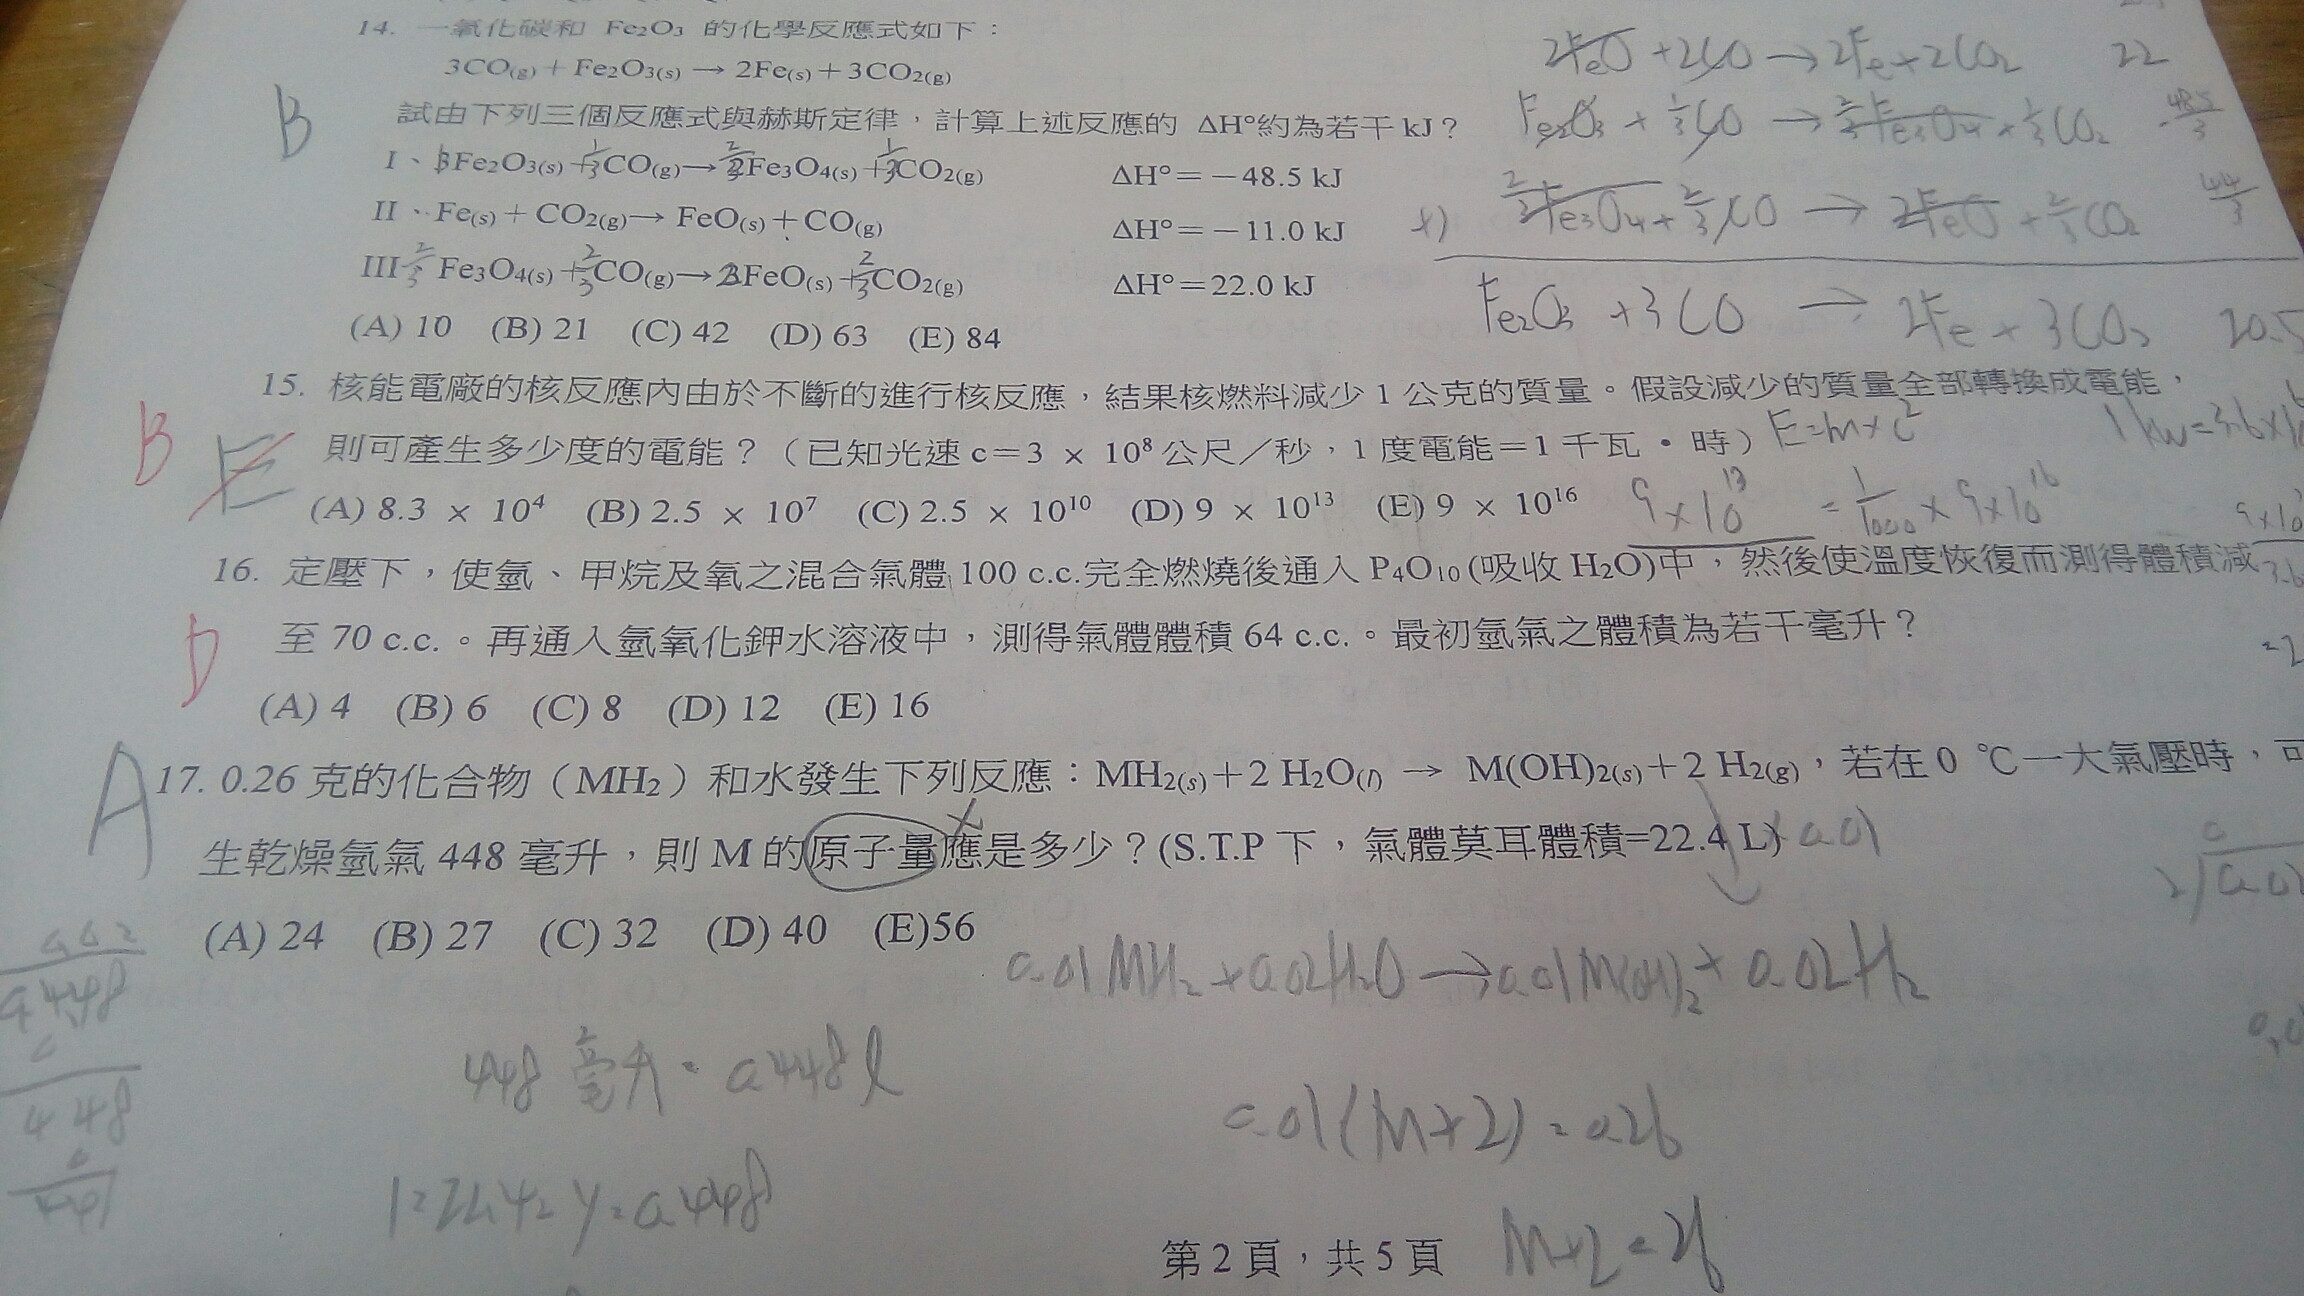 14. 一氧化碳和 Fe2O3 的化學反應式如下：
3CO(g)＋Fe2O3(s) → 2Fe(s)＋3CO2(g)
B
試由下列三個反應式與赫斯定律，計算上述反應的 ΔH°約為若干 kJ？
I、3Fe2O3(s)＋CO(g)→2Fe3O4(s)＋CO2(g) ΔH°＝－48.5 kJ
II、Fe(s)＋CO2(g)→ FeO(s)＋CO(g) ΔH°＝－11.0 kJ
III、Fe3O4(s)＋CO(g)→3FeO(s)＋CO2(g) ΔH°＝22.0 kJ
(A) 10 (B) 21 (C) 42 (D) 63 (E) 84
2FeO + 2CO → 2Fe + 2CO2 22
Fe2O3 + 1/3CO → 2/3Fe3O4 + 1/3CO2 -48.5/3
+) 2/3Fe3O4 + 2/3CO → 2FeO + 2/3CO2 44/3
Fe2O3 + 3CO → 2Fe + 3CO2 20.5
15. 核能電廠的核反應內由於不斷的進行核反應，結果核燃料減少 1 公克的質量。假設減少的質量全部轉換成電能，
B E
則可產生多少度的電能？（已知光速 c＝3 × 10⁸ 公尺／秒，1 度電能＝1 千瓦・時） E=m×c²
(A) 8.3 × 10⁴ (B) 2.5 × 10⁷ (C) 2.5 × 10¹⁰ (D) 9 × 10¹³ (E) 9 × 10¹⁶
9×10¹³ = 1/1000 × 9×10¹⁶
16. 定壓下，使氫、甲烷及氧之混合氣體 100 c.c.完全燃燒後通入 P4O10 (吸收 H2O)中，然後使溫度恢復而測得體積減
D
至 70 c.c.。再通入氫氧化鉀水溶液中，測得氣體體積 64 c.c.。最初氫氣之體積為若干毫升？
(A) 4 (B) 6 (C) 8 (D) 12 (E) 16
A
17. 0.26 克的化合物（MH2）和水發生下列反應：MH2(s)＋2 H2O(l) → M(OH)2(s)＋2 H2(g)，若在 0 ℃一大氣壓時，可
生乾燥氫氣 448 毫升，則 M 的原子量應是多少？(S.T.P 下，氣體莫耳體積=22.4 L)
(A) 24 (B) 27 (C) 32 (D) 40 (E)56
0.01MH2 + 0.02H2O → 0.01M(OH)2 + 0.02H2
448 毫升 = 0.448 l
0.01(M+2) = 0.26
M+2 = 26
第 2 頁，共 5 頁